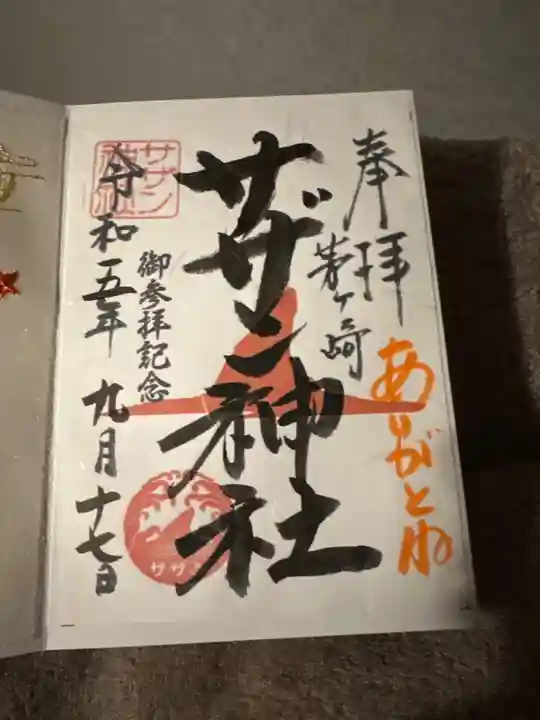 奉拝
茅ヶ崎
ありがとね
サザン神社
御参拝記念
令和五年九月十七日
サザン
神社
サザン